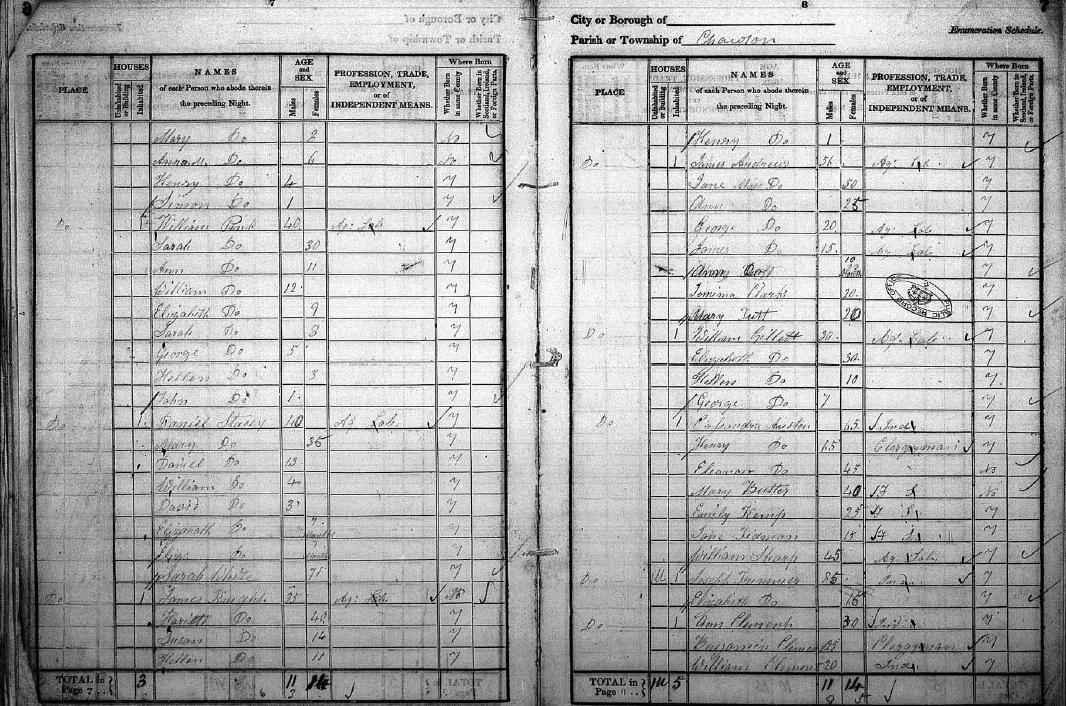 7
HOUSES
AGE and SEX
Where Born
PLACE
Uninhabited or Building
Inhabited
NAMES of each Person who abode therein the preceding Night.
Males
Females
PROFESSION, TRADE, EMPLOYMENT, or of INDEPENDENT MEANS.
Whether Born in same County
Whether Born in Scotland, Ireland, or Foreign Parts.
Mary Do 2 No
Do 6 No
Henry Do 4 y
Simon Do 1 y
Do 1 William Pink 40 Ag: Lab y
Sarah Do 30 y
Ann Do 11 y
William Do 12 y
Elizabeth Do 9 y
Sarah Do 8 y
George Do 5 y
Hellen Do 3 y
John Do 1 y
Do 1 Daniel Stacey 40 Ag Lab. y
Mary Do 35 y
Daniel Do 13 y
William Do 4 y
David Do 3 y
Elizabeth Do 7 Months y
Eliza Do 7 Months y
Sarah White 71 y
Do 1 James Knight 35 Ag: Lab No
Hariett Do 40 y
Susan Do 14 y
Hellen Do 11 y
TOTAL in Page 7 3 11 14
3
8
City or Borough of
Parish or Township of Chawton
Enumeration Schedule.
HOUSES
AGE and SEX
Where Born
PLACE
Uninhabited or Building
Inhabited
NAMES of each Person who abode therein the preceding Night.
Males
Females
PROFESSION, TRADE, EMPLOYMENT, or of INDEPENDENT MEANS.
Whether Born in same County
Whether Born in Scotland, Ireland, or Foreign Parts.
Henry Do 1 y
Do 1 James Andrews 56 Ag: Lab y
Jane Do 50 y
Ann Do 25 y
George Do 20 Ag: Lab y
James Do 15 Ag Lab y
10 Months y
Jemima Clark 20 y
Mary Tutt 20 y
Do 1 William Gillett 30 Ag: Lab y
Elizabeth Do 30 y
Hellen Do 10 y
George Do 7 y
Do 1 Cassandra Austen 65 Ind y
Henry Do 65 Clergyman y
Eleanor Do 45 No
Mary Butter 40 F S No
Emily Kemp 25 F S y
Jane Tidman 15 F S y
William Sharp 45 Ag. Lab. y
Do 1 Joseph Trimmer 85 Ind. y
Elizabeth Do 15 y
Do 1 Ann Clement 30 Ind y
Benjamin Clement Clergyman y
William Clement 20 Ind y
TOTAL in Page 8 5 11 14
8 5